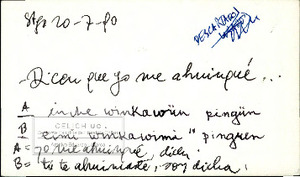 Stgo 20-7-90
DESCARTADO
- Dicen que yo me ahuinqué...
A inche winkawün pingün
B eimi winkawimi " pingen
CELICH UC
A = yo me ahuinqué, dicen
B = tú te ahuincaste, sos dicha,